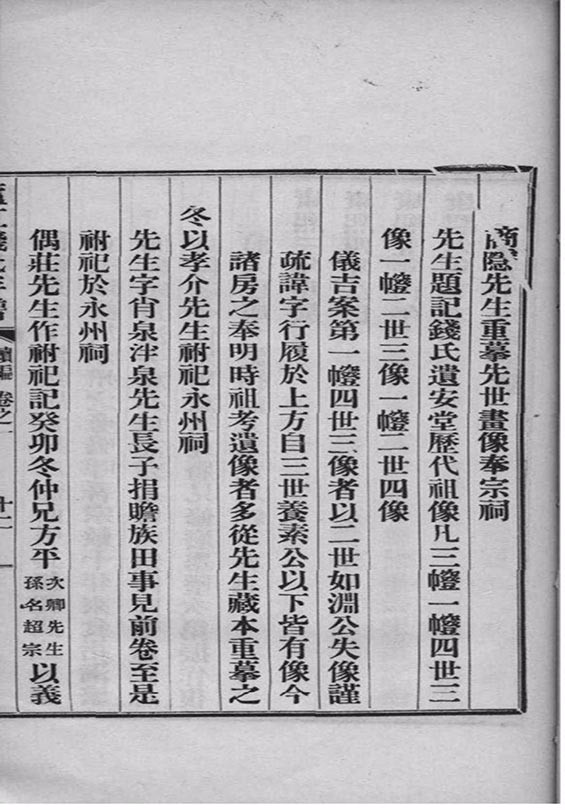 商隱先生重摹先世畫像奉宗祠
先生題記錢氏遺安堂歷代祖像凡三幢一幢四世三
像一幢二世三像一幢二世四像
儀吉案第一幢四世三像者以二世如淵公失像謹
疏諱字行履於上方自三世養素公以下皆有像今
諸房之奉明時祖考遺像者多從先生藏本重摹之
冬以孝介先生祔祀永州祠
先生字肖泉泮泉先生長子捐贍族田事見前卷至是
祔祀於永州祠
偶莊先生作祔祀記癸卯冬仲兄方平次卿先生孫名超宗以義
錢氏年譜 續編 卷之一 十二